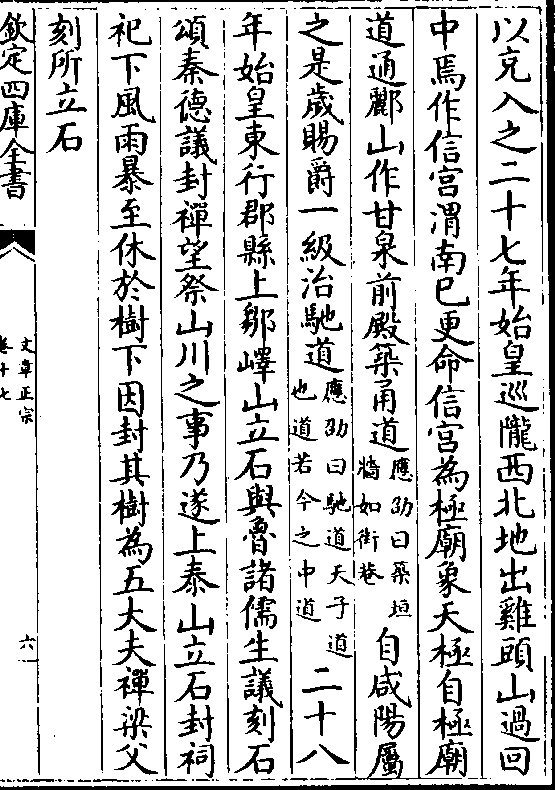 以充入之二十七年始皇巡隴西北地出雞頭山過回
中焉作信宮渭南巳更命信宮為極廟象天極自極廟
道通酈山作甘泉前殿築甬道應劭曰築垣墻如街巷自咸陽屬
之是歲賜爵一級治馳道應劭曰馳道天子道也道若今之中道二十八
年始皇東行郡縣上鄒嶧山立石與魯諸儒生議刻石
頌秦德議封禪望祭山川之事乃遂上泰山立石封祠
祀下風雨暴至休於樹下因封其樹為五大夫禪梁父
刻所立石
欽定四庫全書
文章正宗
卷十七
六